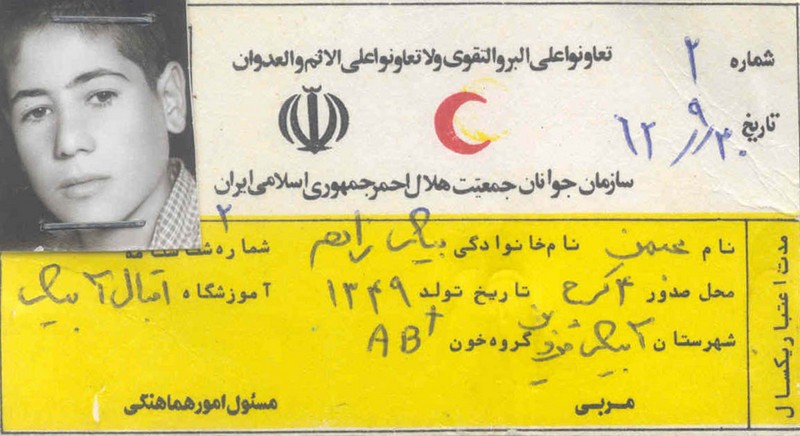 تعاونوا علی البر والتقوی ولا تعاونوا علی الاثم والعدوان
شماره ۲
تاریخ ۶۲/۹/۳۰
سازمان جوانان جمعیّت هلال احمر جمهوری اسلامی ایران
نام محسن نام خانوادگی شماره شناسنامه ۲
محل صدور ۴ کرج تاریخ تولد ۱۳۴۹ آموزشگاه اقبال آبیک
شهرستان آبیک قزوین گروه خون AB+
مربی مسئول امور هماهنگی
مدت اعتبار یکسال